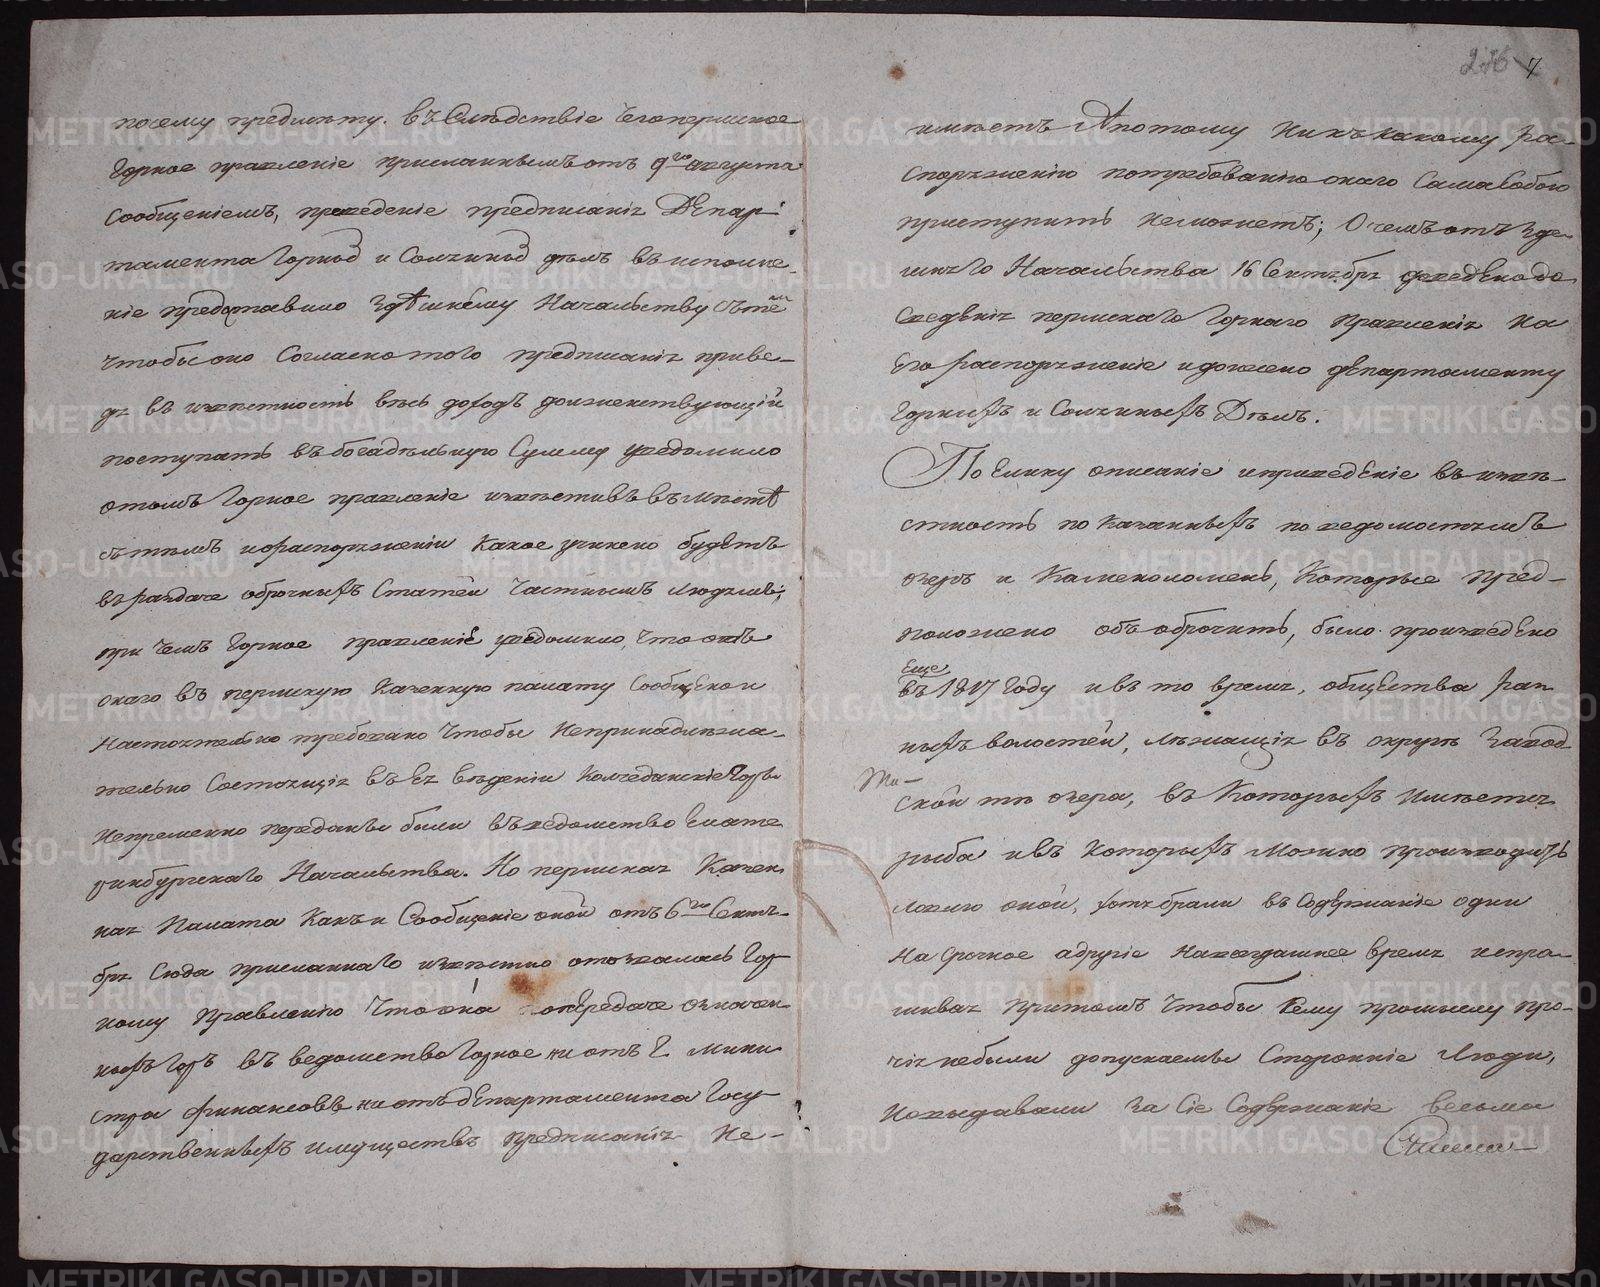 посему предмѣту. въ Слѣдствіе чего пермское
Горное правленіе присланнымъ отъ 9го августа
сообщеніемъ, прописаніе предписанія Депар-
тамента Горныхъ и Соляныхъ дѣлъ въ исполне-
ніе предоставило здѣшнему Начальству съ тѣмъ
чтобы оно Согласно того предписанія приве-
дя въ извѣстность весь доходъ долженствующій
поступать въ богадѣльную Сумму уведомило
отомъ Горное правленіе известивъ въ мѣстѣ
съ тѣмъ иораспоряженіи какое учинено будетъ
въ раздаче оброчныхъ Статей частнымъ людямъ;
при чемъ горное правленіе уведомило, что отъ
онаго въ пермскую казенную палату Сообщено и
настоятельно требовано чтобы непринадлежа-
тельно Состоящія въ ея вѣденіи Колчеданскіе Горы
непременно переданы были въ ведомство Екате
ринбургскаго Начальства. Но пермская Казен
ная Палата какъ и Сообщеніе оной отъ 6го Сентя-
бря Сюда присланнаго извѣстно отозвалась Гор
ному правленію что она о передаче означен-
ныхъ Горъ въ ведомство Горное ни отъ Г. Мини
стра финансовъ ни отъ департамента Госу-
дарственныхъ имуществъ предписанія не-
276 7
имѣетъ Апотому ни къ какому рас-
споряженію потребованію онаго Сама Собою
приступить неможетъ; О чемъ отъ зде-
шняго Начальства 16 Сентября доведено до
Сведѣнія пермскаго Горнаго Правленія на
Его распоряженіе и донесено департаменту
Горныхъ и Соляныхъ Дѣлъ.
Поелику описаніе иприведѣніе въ извѣ-
стность показанныхъ поведомостямъ
озеръ и Каменоломень, Которые пред-
положено объоброчить, было произведено
Еще
въ 1817 году и въ то время, общества раз
ныхъ волостей, лежащія въ округѣ завод
ской тѣ озера, въ Которыхъ имѣется
рыба ивъ которыхъ можно производить
ловлю оной, хотя брали въ содержаніе одни
на срочное адругіе навсегдашнее время испра-
шивая притомъ чтобы Кему промыслу про-
чія небыли допускаемы Сторонніе люди,
новыдавали за Сіе Содержаніе весьма